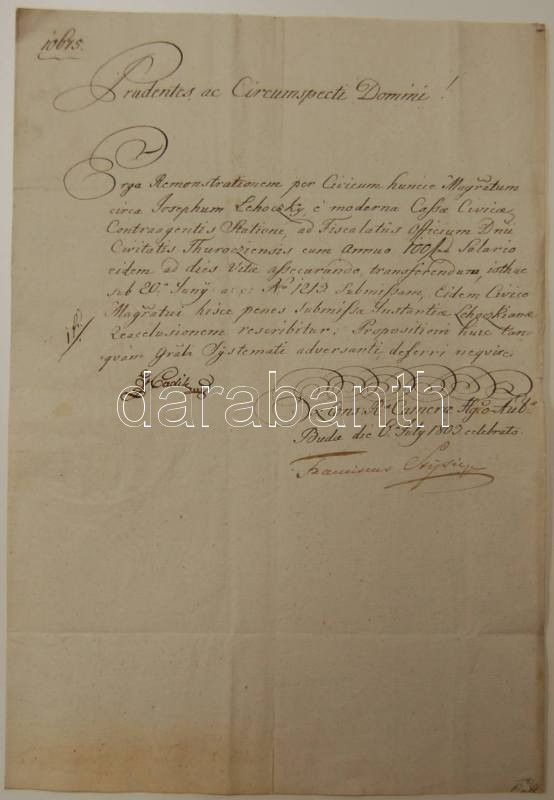 10675.
Prudentes, ac Circumspecti Domini!
Erga Remonstrationem per Civicum huncce Magratum
circa Josephum Lehoczky, e moderna Cassæ Civicæ
Contraagentis Statione, ad Fiscalatus Officium Dnii
Civitatis Thurocziensis cum annuo 100 Salario
eidem ad dies Vitæ assecurando, transferendum, isthuc
sub 20a Junÿ a: c: No 1213 Submissam, Eidem Civico
Magratui hisce penes Submissæ Instantiæ Lehoczkianæ
Reacclusionem rescribitur: Propositioni huic tan
quam Gräli Systemati adversanti deferri nequire.
darabanth
Cons. R. Camera Hgco-Aul.
Budæ die July 1803. celebrato
Franciscus